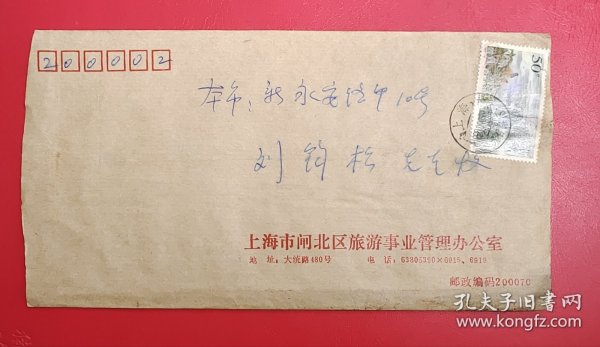 200002
50
本市：新永安路甲10号
上海
刘钧松先生收
上海市闸北区旅游事业管理办公室
地 址：大统路480号 电 话：63805390×6915、6919
邮政编码200070
孔夫子旧书网
www.kongfz.com